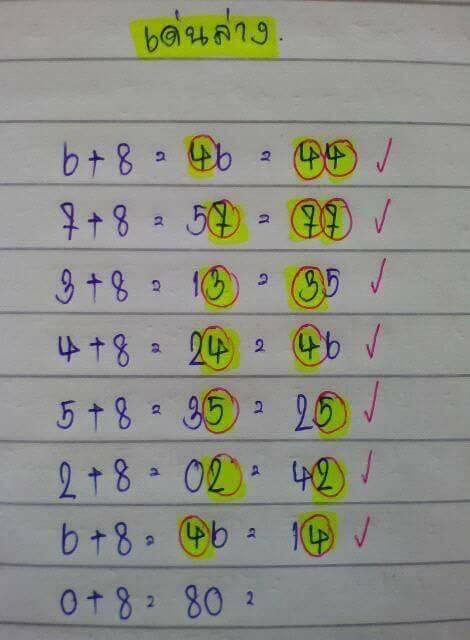 เด่นล่าง.
6+8 = 46 = 44 ✓
7+8 = 57 = 77 ✓
3+8 = 13 = 35 ✓
4+8 = 24 = 46 ✓
5+8 = 35 = 25 ✓
2+8 = 02 = 42 ✓
6+8 = 46 = 14 ✓
0+8 = 80 =